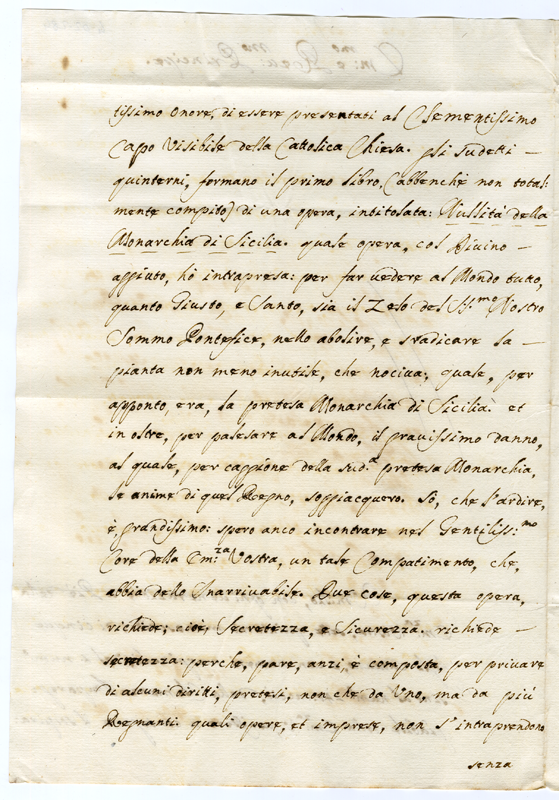 tissimo onore, di essere presentati al Clementissimo
Capo Visibile della Cattolica Chiesa. Gli sudetti -
quinterni, formano il primo libro, (abbenchè non total:
mente compito) di una opera, intitolata: Nullità della
Monarchia di Sicilia. quale opera, col Divino -
aggiuto, hò intrapresa: per far vedere al Mondo tutto,
quanto Giusto, e Santo, sia il Zelo del S.mo Nostro
Sommo Pontefice, nello abolire, e sradicare la -
pianta non meno inutile, che nociva; quale, per
apponto, era, la pretesa Monarchia di Sicilia: et
in oltre, per palesare al Mondo, il pravissimo danno,
al quale, per caggione della sud.a pretesa Monarchia,
le anime di quel Regno, soggiacquero. Sò, che l'ardire,
è, grandissimo: spero anco incontrare nel Gentiliss:mo
Core della Em:za Vostra, un tale Compatimento, che,
abbia dello Inarrivabile. Due cose, questa opera,
richiede; cioè, Secretezza, e Sicurezza. richiede -
secretezza: perche, pare, anzi è composta, per privare
di alcuni diritti, pretesi, non che da Uno, ma da più
Regnanti: quali opere, et imprese, non s'intraprendono
senza